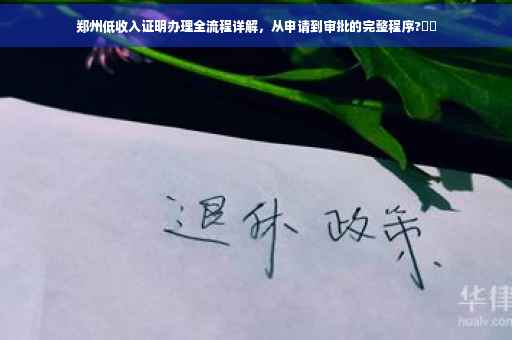 郑州低收入证明办理全流程详解，从申请到审批的完整程序?
退休 政策
华律
hualv.com